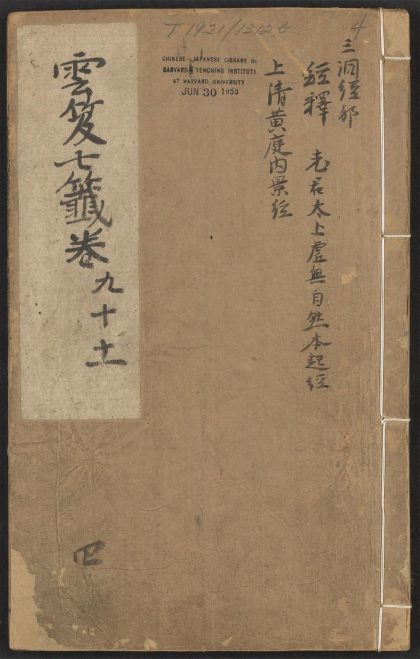 4
三洞經部
經釋 老君太上虛無自然本起經
上清黃庭內景經
CHINESE - JAPANESE LIBRARY OF
HARVARD - YENCHING INSTITUTE
AT HARVARD UNIVERSITY
JUN 30 1953
雲笈七籤卷九十十一
四